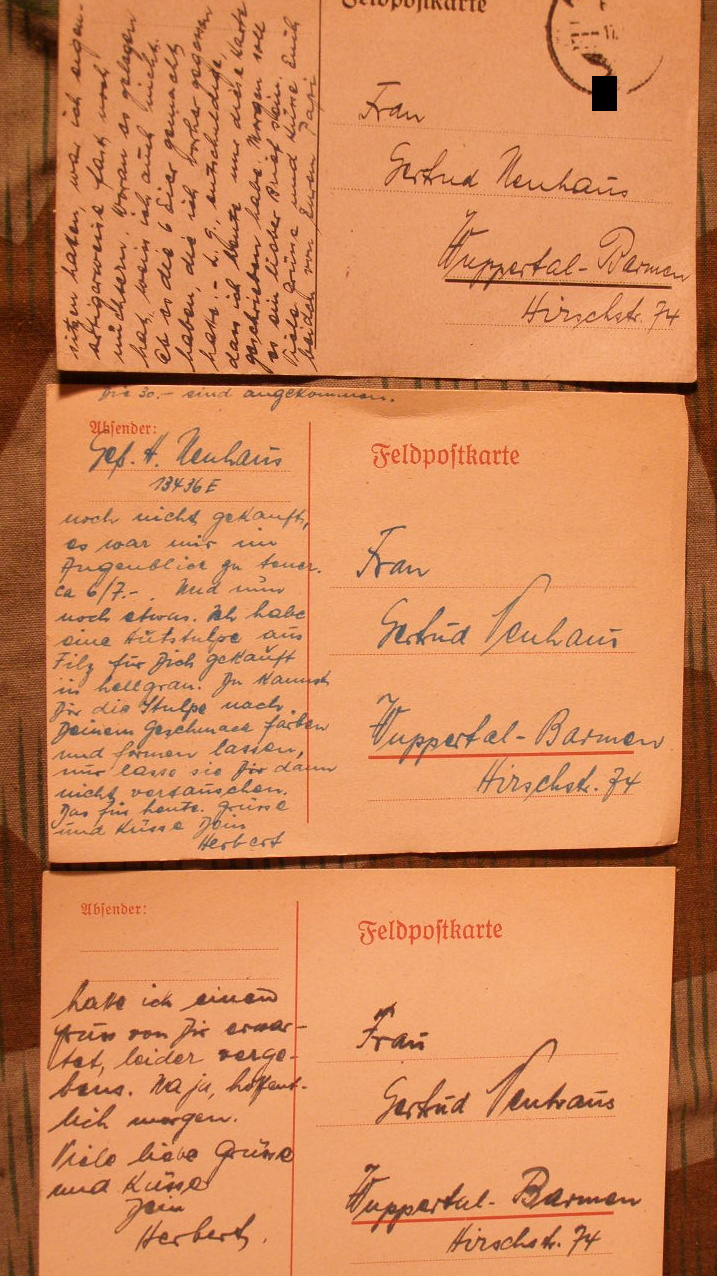 sitzen haben, war ich eigen-
artigerweise fast noch
nüchtern. Woran es gelegen
hat, weiss ich auch nicht.
Ob es die 6 Eier gemacht
haben, die ich vorher gegessen
hatte.
dass ich heute nur diese Karte
geschrieben habe. Morgen soll
es ein lieber Brief sein.
Viele Grüsse und Küsse Euch
beiden von Euren Papi
Feldpostkarte
Frau
Gertrud Neuhaus
Wuppertal-Barmen
Hirschstr. 74
Die 30.- sind angekommen.
Absender:
Gef. H. Neuhaus
13436 E
noch nicht gekauft,
es war mir im
Augenblick zu teuer.
ca 6/7.-. Und nun
noch etwas. Ich habe
eine Hutstulpe aus
Filz für Dich gekauft
in hellgrau. Du kannst
Dir die Stulpe nach
Deinem Geschmack färben
und formen lassen,
nur lasse sie Dir dann
nicht vertauschen.
Das für heute. Grüsse
und Küsse Dein
Herbert
Feldpostkarte
Frau
Gertrud Neuhaus
Wuppertal-Barmen
Hirschstr. 74
Absender:
hatte ich einen
Gruss von Dir erwar-
tet, leider verge-
bens. Na ja, hoffent-
lich morgen.
Viele liebe Grüsse
und Küsse
Dein
Herbert.
Feldpostkarte
Frau
Gertrud Neuhaus
Wuppertal-Barmen
Hirschstr. 74